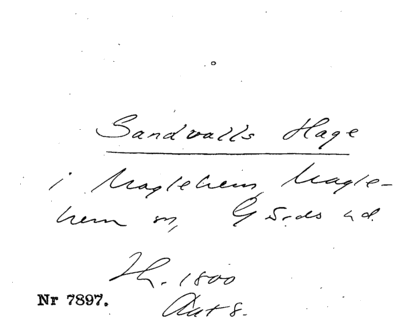 Sandvalls Hage
i Maglehem, Magle-
hem sn, Gärds hd.
Th. 1800
Akt 8.
Nr 7897.